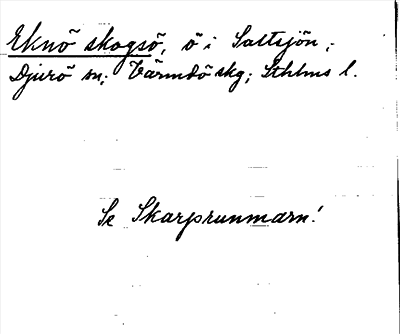 Eknö skogsö, ö i Saltsjön;
Djurö sn; Värmdö skg; Sthlms l.
Se Skarprunmarn!